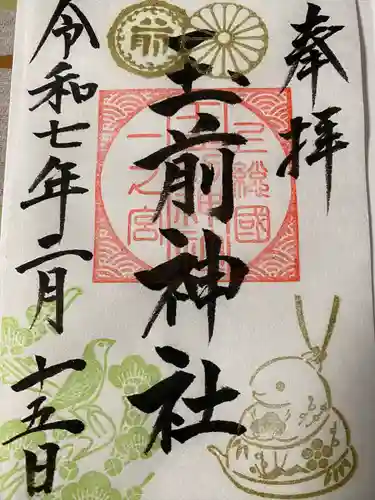 奉拝
玉前神社
上総國
一之宮
前
令和七年二月十五日